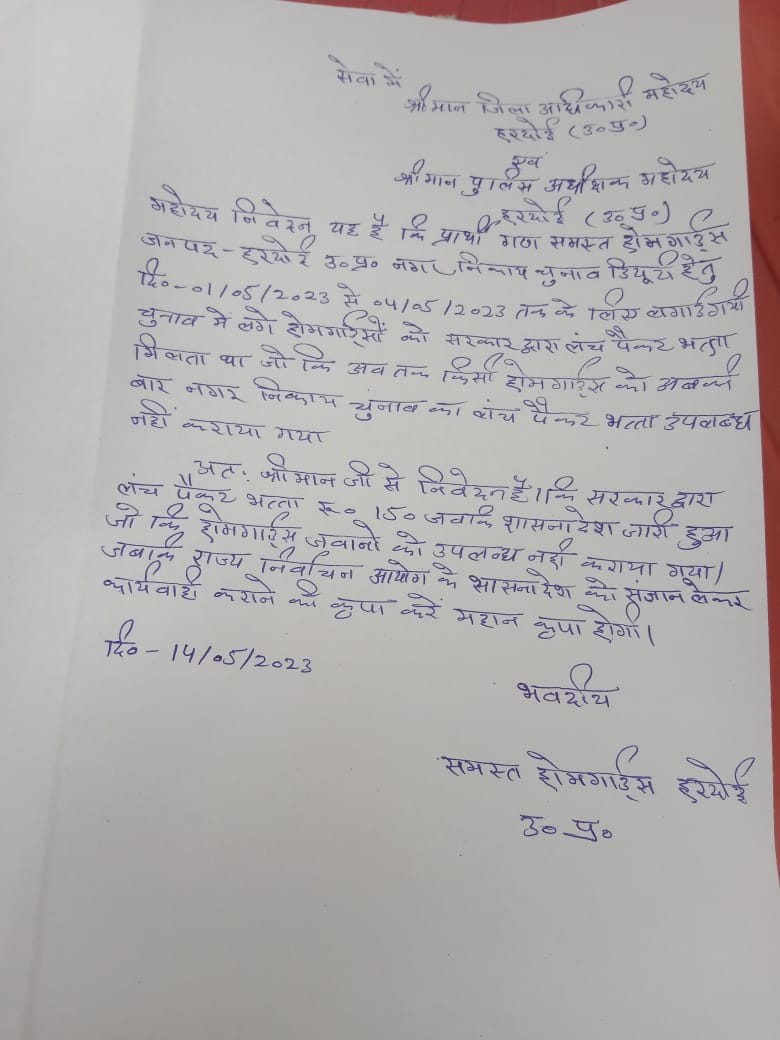 सेवा में
श्रीमान जिला अधिकारी महोदय
हरदोई (उ०प्र०)
एवं
श्रीमान पुलिस अधीक्षक महोदय
हरदोई (उ०प्र०)
महोदय निवेदन यह है कि प्रार्थी गण समस्त होमगार्ड्स
जनपद - हरदोई उ०प्र० नगर निकाय चुनाव डियूटी हेतु
दि०-01/05/2023 से 04/05/2023 तक के लिए लगाई गयी
चुनाव में लगे होमगार्ड्सों को सरकार द्वारा लंच पैकट भत्ता
मिलता था जो कि अब तक किसी होमगार्ड्स को अबकी
बार नगर निकाय चुनाव का लंच पैकट भत्ता उपलब्ध
नहीं कराया गया
अतः श्रीमान जी से निवेदन है। कि सरकार द्वारा
लंच पैकट भत्ता रू० 150 जबकि शासनादेश जारी हुआ
जो कि होमगार्ड्स जवानों को उपलब्ध नहीं कराया गया।
जबकि राज्य निर्वाचन आयोग के शासनादेश को संज्ञान लेकर
कार्यवाही कराने की कृपा करें महान कृपा होगी।
दि० - 14/05/2023
भवदीय
समस्त होमगार्ड्स हरदोई
उ० प्र०